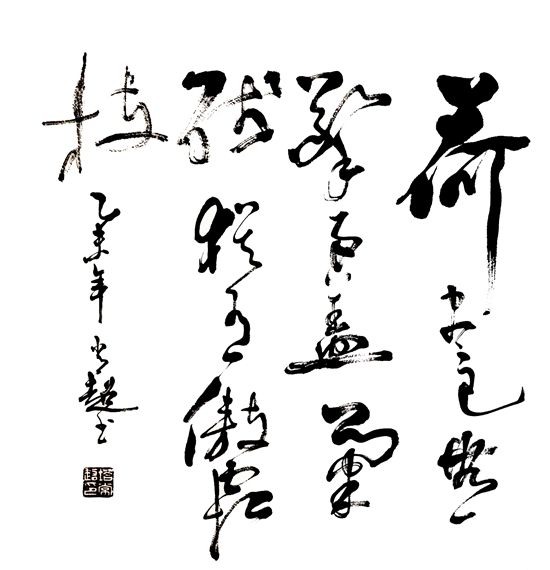 荷尽已無
擎雨盖菊
残猶有傲霜
枝
乙未年 超书